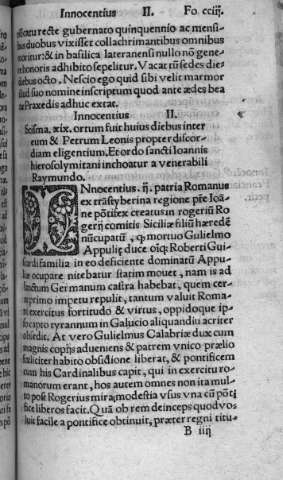 Innocentius II. Fo. cciij.
recte gubernato quinquennio ac mensi
bus duobus vixisset collachrimantibus omnibus
moritur: & in basilica lateranensi nullo nō gene
re honoris adhibito sepelitur. Vacat tū sedes die
bus octo. Nescio ego quid sibi velit marmor
illud suo nomine inscriptum quod ante ædes bea
te Praxedis adhuc extat.
Innocentius II.
Scisma .xix. ortum fuit huius diebus inter
eum & Petrum Leonis propter discor-
diam eligentium. Et ordo sancti Ioannis
hierosolymitani inchoatur a venerabili
Raymundo.
INnocentius .ij. patria Romanus
ex trāstyberina regione pr̄e Ioa-
ne pōtifex creatus in rogeriū Ro
gerij comitis Siciliæ filiū hæredē
nūcupatū , q mortuo Gulielmo
Appuliȩ duce ob id Roberti Gui-
scardi familia in eo deficiente dominatū Appu-
liæ ocupare nitebatur statim mouet , nam is ad
sanctum Germanum castra habebat, quem cer-
primo impetu repulit, tantum valuit Roma-
ni exercitus fortitudo & virtus , oppidoque ip-
so capto tyrannum in Galucio aliquandiu acriter
obsedit. At vero Gulielmus Calabriæ dux cum
magnis copijs adueniens & patrem vnico prælio
foeliciter habito obsidione liberat, & pontificem
cum his Cardinalibus capit, qui in exercitu ro-
manorum erant , hos autem omnes non ita mul-
to post Rogerius mira modestia vsus vna cū pōti
fice liberos facit. Quā ob rem deinceps quod vo-
luit facile a pontifice obtinuit , præter regni titu-
B iiij